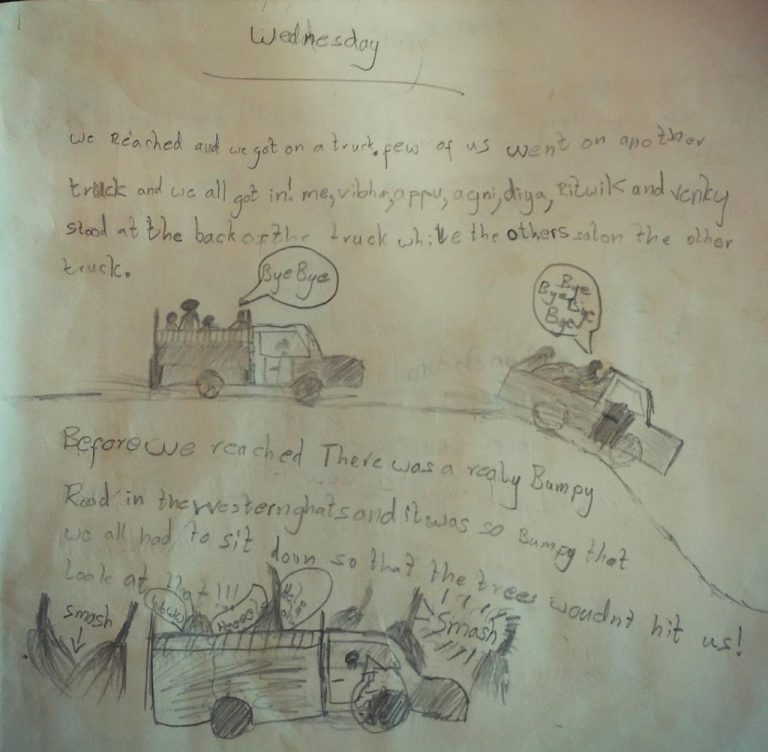 Wednesday
we Reached and we got on a truck. few of us went on another
truck and we all got in! me, vibha, appu, agni, diya, Ritwik and venky
stood at the back of the truck while the others sat on the other
truck.
Bye Bye
Bye
Bye Bye
Bye
Before we reached There was a realy Bumpy
Road in the westernghats and it was so Bumpy that
we all had to sit down so that the trees woudnt hit us!
Look at that!!!
smash
Smash